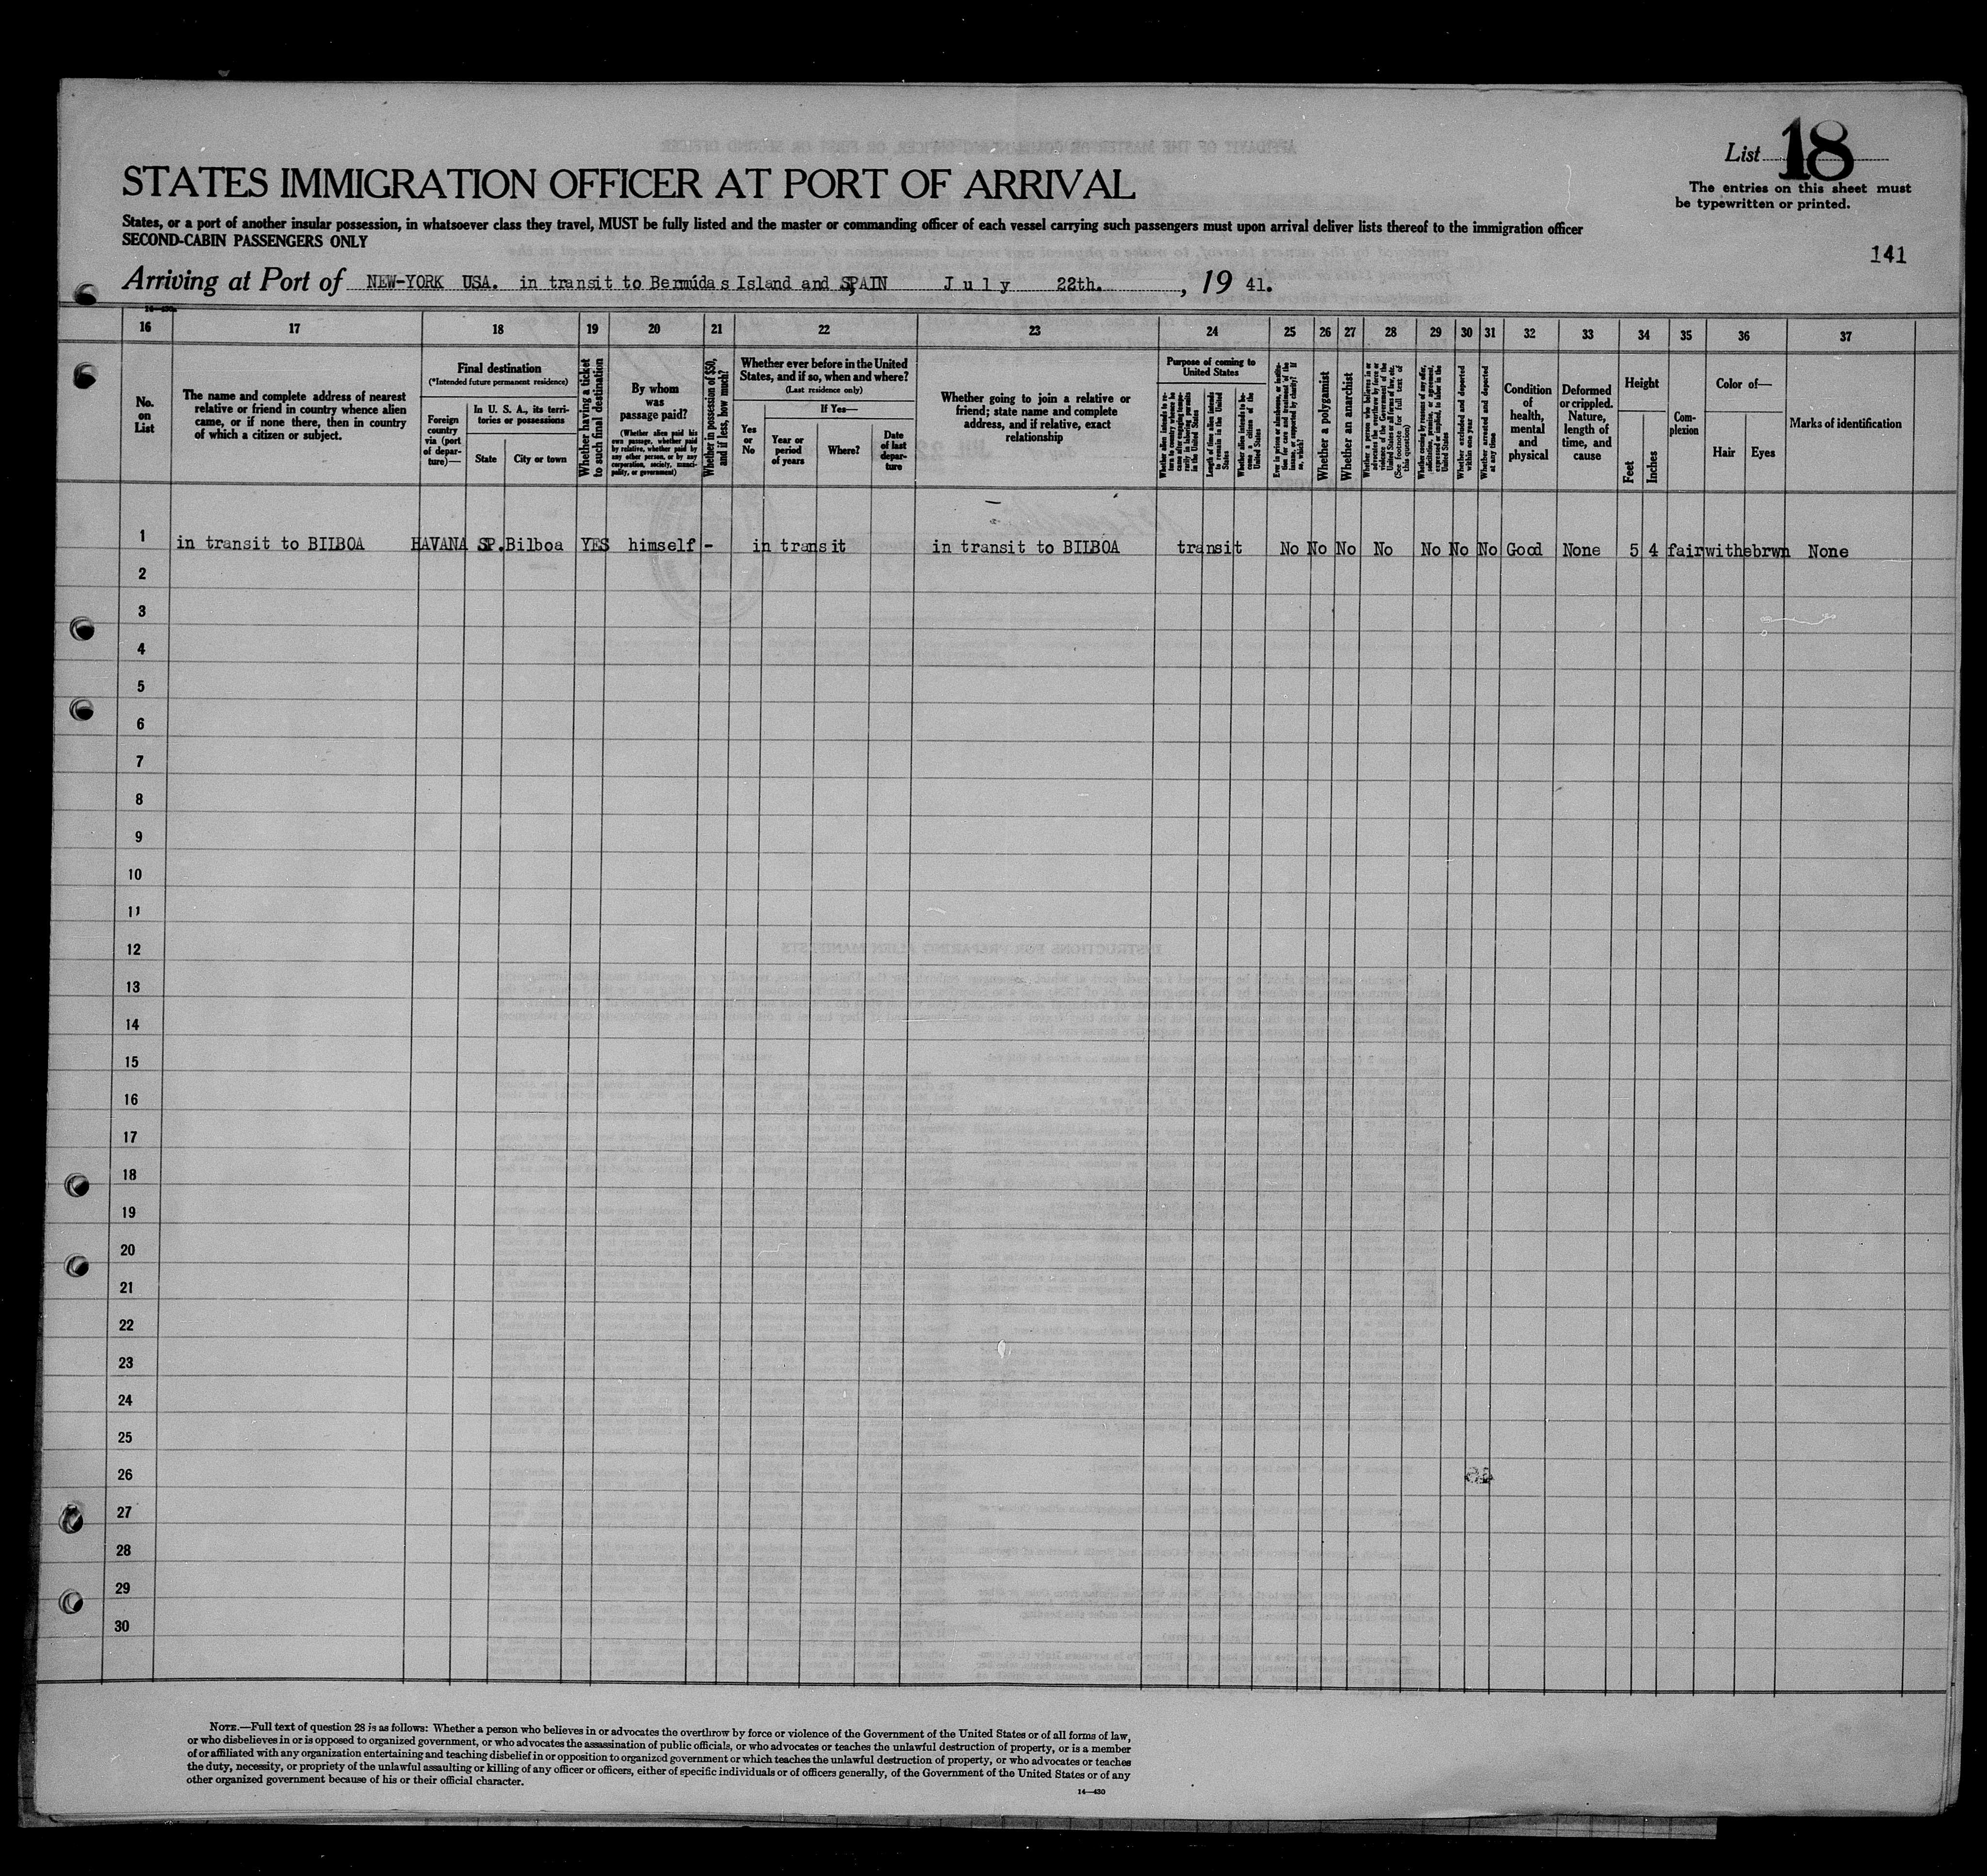 List 18
The entries on this sheet must
be typewritten or printed.
STATES IMMIGRATION OFFICER AT PORT OF ARRIVAL
States, or a port of another insular possession, in whatsoever class they travel, MUST be fully listed and the master or commanding officer of each vessel carrying such passengers must upon arrival deliver lists thereof to the immigration officer
SECOND-CABIN PASSENGERS ONLY
141
Arriving at Port of NEW-YORK USA. in transit to Bermúdas Island and SPAIN July 22th., 19 41.
16 17 18 19 20 21 22 23 24 25 26 27 28 29 30 31 32 33 34 35 36 37
No.
on
List
The name and complete address of nearest
relative or friend in country whence alien
came, or if none there, then in country
of which a citizen or subject.
Final destination
(*Intended future permanent residence)
Foreign
country
via (port
of depar-
ture)—
In U. S. A., its terri-
tories or possessions
State
City or town
Whether having a ticket
to such final destination
By whom
was
passage paid?
(Whether alien paid his
own passage, whether paid
by relative, whether paid by
any other person, or by any
corporation, society, munici-
pality, or government)
Whether in possession of $50,
and if less, how much?
Whether ever before in the United
States, and if so, when and where?
(Last residence only)
Yes
or
No
If Yes—
Year or
period
of years
Where?
Date
of last
depar-
ture
Whether going to join a relative or
friend; state name and complete
address, and if relative, exact
relationship
Purpose of coming to
United States
Whether alien intends to re-
turn to country whence he
came after engaging tempo-
rarily in laboring pursuits
in the United States
Length of time alien intends
to remain in the United
States
Whether alien intends to be-
come a citizen of the
United States
Ever in prison or almshouse, or institu-
tion for care and treatment of the
insane, or supported by charity? If
so, which?
Whether a polygamist
Whether an anarchist
Whether a person who believes in or
advocates the overthrow by force or
violence of the Government of the
United States or all forms of law, etc.
(See footnote for full text of
this question)
Whether coming by reason of any offer,
solicitation, promise, or agreement,
expressed or implied, to labor in the
United States
Whether excluded and deported
within one year
Whether arrested and deported
at any time
Condition
of
health,
mental
and
physical
Deformed
or crippled.
Nature,
length of
time, and
cause
Height
Feet
Inches
Com-
plexion
Color of—
Hair
Eyes
Marks of identification
1 in transit to BILBOA HAVANA SP. Bilboa YES himself - in transit in transit to BILBOA transit No No No No No No No Good None 5 4 fair withe brwn None
2
3
4
5
6
7
8
9
10
11
12
13
14
15
16
17
18
19
20
21
22
23
24
25
26
27
28
29
30
NOTE.—Full text of question 28 is as follows: Whether a person who believes in or advocates the overthrow by force or violence of the Government of the United States or of all forms of law,
or who disbelieves in or is opposed to organized government, or who advocates the assassination of public officials, or who advocates or teaches the unlawful destruction of property, or is a member
of or affiliated with any organization entertaining and teaching disbelief in or opposition to organized government or which teaches the unlawful destruction of property, or who advocates or teaches
the duty, necessity, or propriety of the unlawful assaulting or killing of any officer or officers, either of specific individuals or of officers generally, of the Government of the United States or of any
other organized government because of his or their official character.
14—430